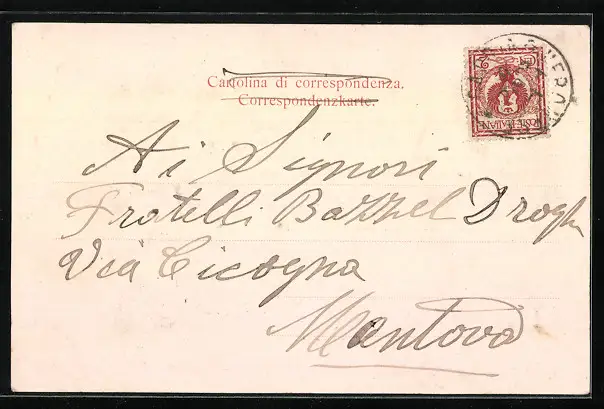 Cartolina di corrispondenza.
Correspondenzkarte.
Ai Signori
Fratelli Bazzel Drogh
Via Cicogna
Mantova